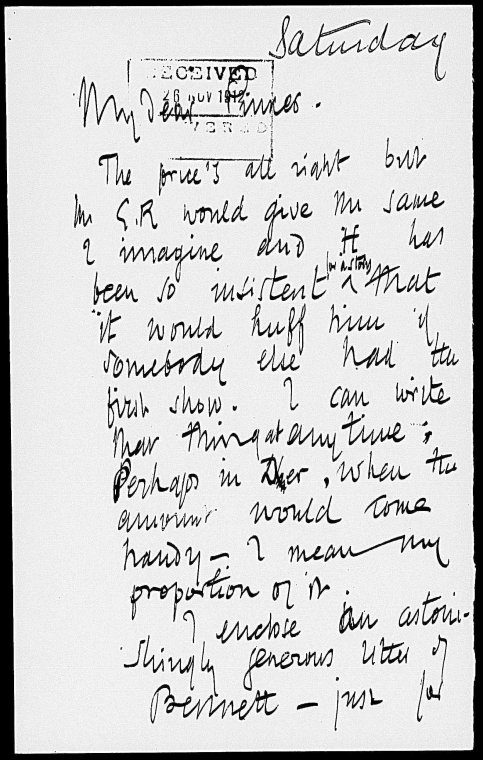 Saturday
RECEIVED
26 NOV 1912
My Dear Pinker.
The price's all right but
the E.R would give the same
I imagine and H has
been so insistent for a story that
it would huff him if
somebody else had the
first show. I can write
that thing at any time;
Perhaps in Dber, when the
amount would come
handy – I mean my
proportion of it.
I enclose an astoni-
shingly generous letter of
Bennett – just for